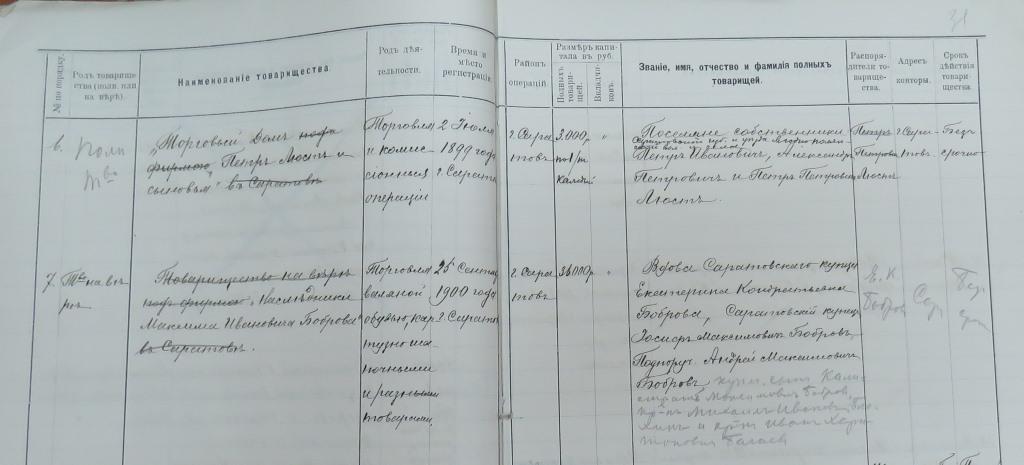 31
№ по порядку.
Родъ товарище-
ства (полн. или
на вѣрѣ).
Наименованіе товарищества.
Родъ дѣя-
тельности.
Время и
мѣсто
регистраціи.
Районъ
операцій.
Размѣръ капи-
тала въ руб.
Полныхъ
товари-
щей.
Вкладчи-
ковъ.
Званіе, имя, отчество и фамилія полныхъ
товарищей.
Распоря-
дители то-
варище-
ства.
Адресъ
конторы.
Срокъ
дѣйствія
товари-
щества
6.
Полн
Тво
„Торговый Домъ подъ
фирмою „Петръ Люстъ и
сыновья“ въ Саратовѣ
Торговля
и комис-
сіонныя
операціи
2 Іюля
1899 года
г. Сарат
г. Сара
товъ
3.000 р
каждый
"
Поселяне собственники
Петръ Ивановичъ, Александръ
Петровичъ и Петръ Петровичъ
Люстъ.
Петръ
Петровичъ
Люстъ
г. Сара-
товъ.
Без-
срочно
7.
Тво на вѣ
рѣ
Товарищество на вѣрѣ
подъ фирмою „Наслѣдники
Максима Ивановича Боброва“
въ Саратовѣ.
Торговля
валяной
обувью, кар
тузно ша-
почными
и разными
товарами.
25 Сентяб
1900 года
г. Сарат
г. Сара
товъ
36000 р.
"
Вдова Саратовскаго купца
Екатерина Кондратьевна
Боброва, Саратовскій купецъ
Іосифъ Максимовичъ Бобровъ,
Подпоруч. Андрей Максимович
Бобровъ купеч. сынъ
Максимовичъ Бобров,
Михаилъ Иванов.
и Иванъ Хари-
тоновичъ
Е. К
Бобров
Сар
Без
сроч